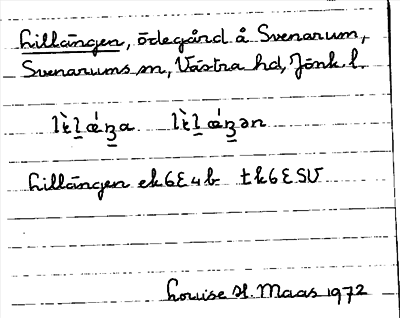 Lillängen, ödegård å Svenarum,
Svenarums sn, Västra hd, Jönk. l.
Lillängen ek6E4b tk6ESV
Louise H. Maas 1972